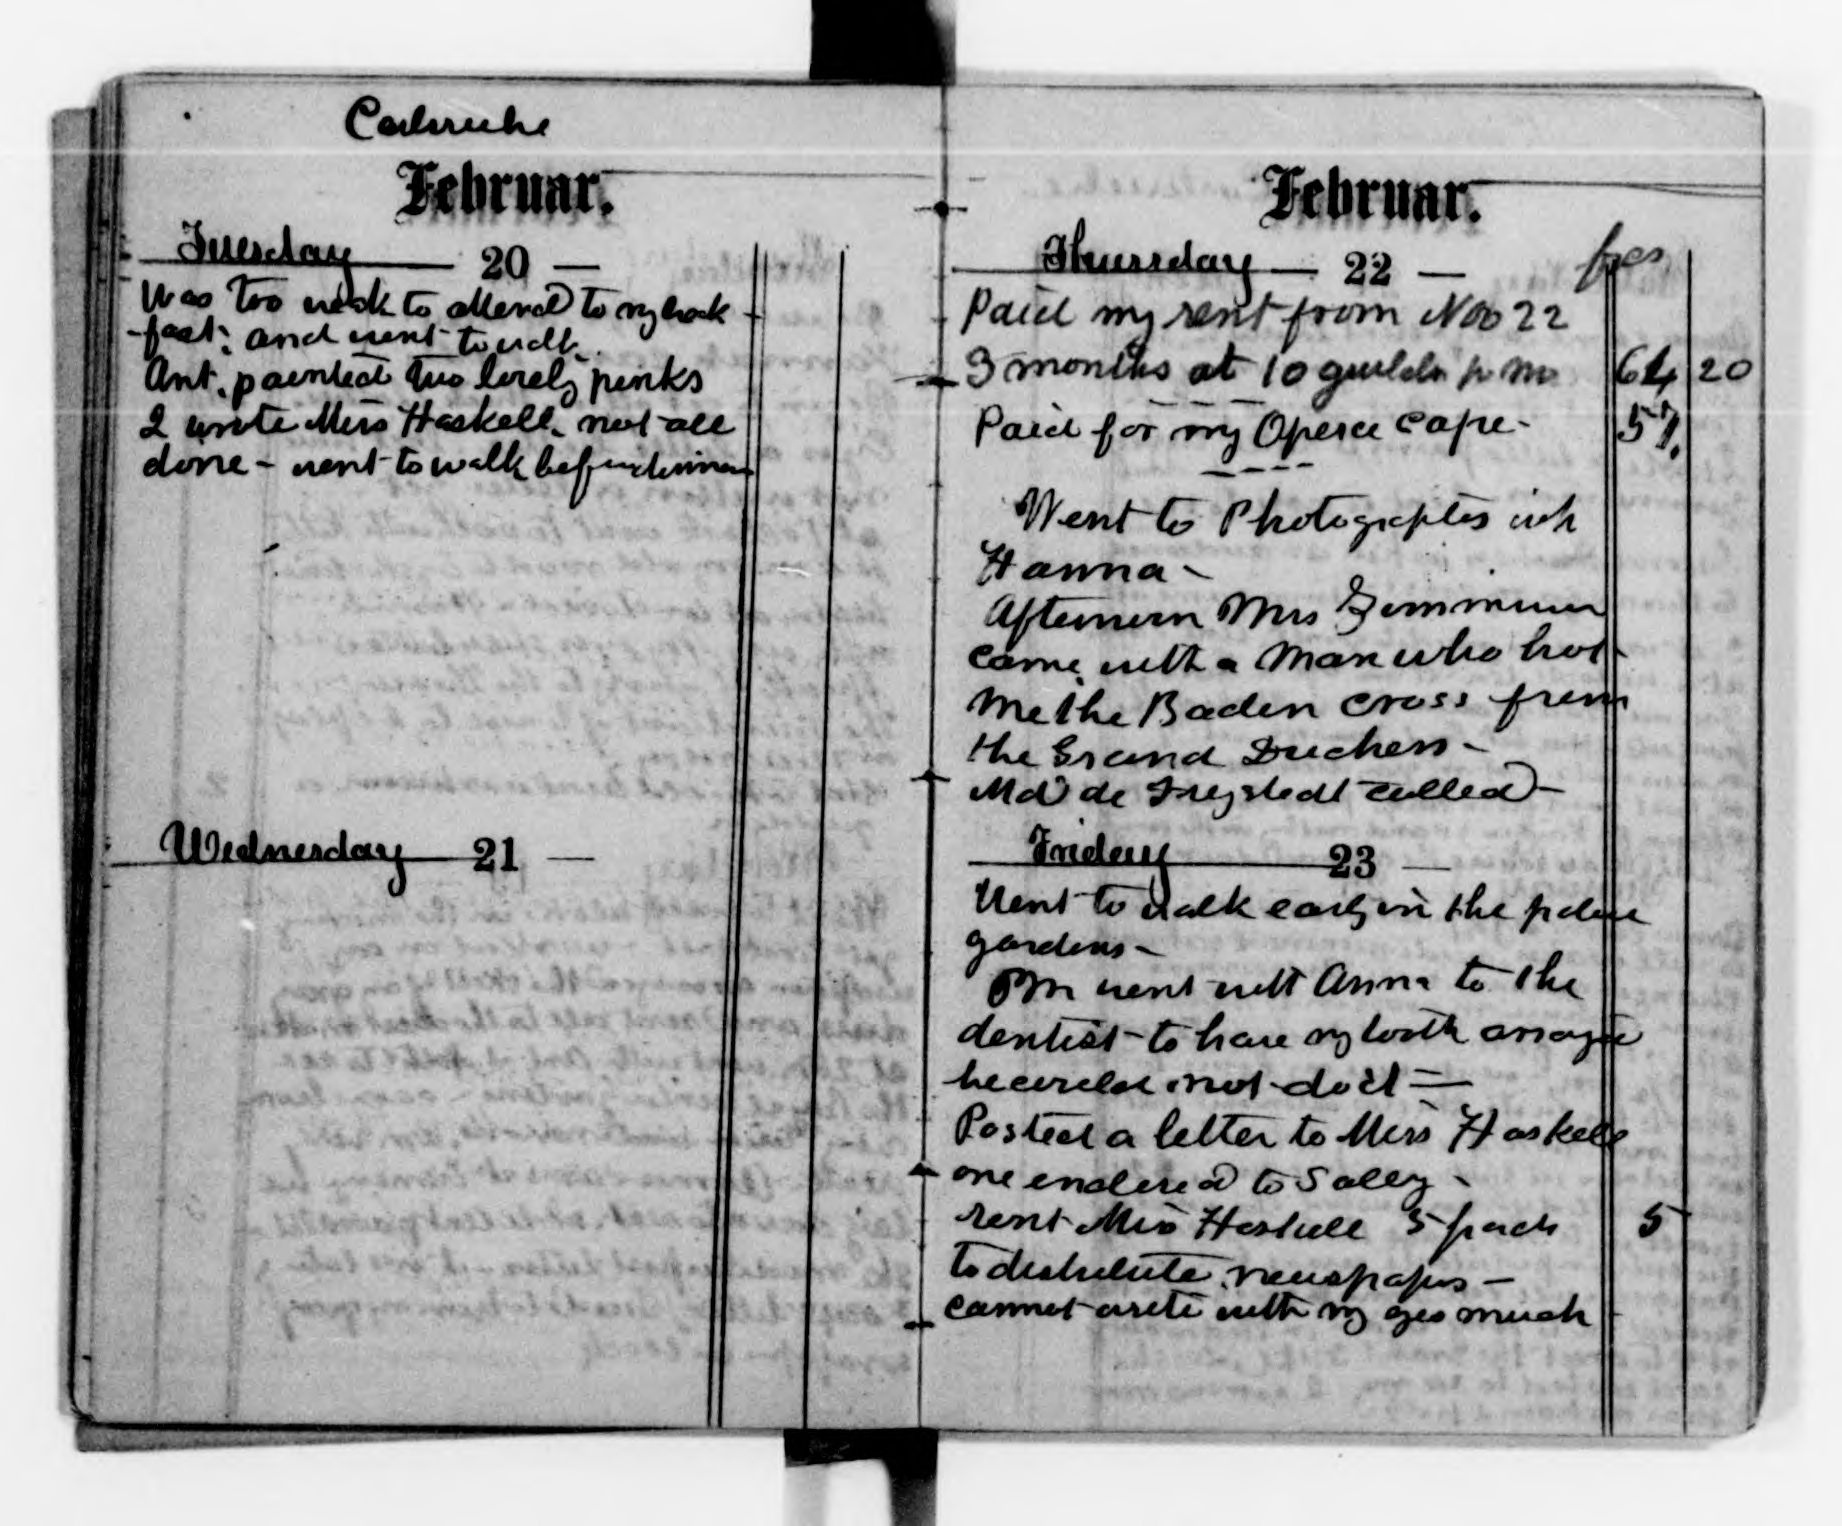 Carlsruhe
Februar.
Tuesday 20 —
Was too weak to attend to my break
-fast, and went to walk
Ant. painted two lovely pinks
I wrote Miss Haskell, not all
done - went to walk before dinner
Wednesday 21 —
Februar.
Thursday — 22 —
Paid my rent from Nov 22
3 months at 10 p m 64 20
Paid for my Opera Cape - 57.
Went to Photographers with
Hanna -
Afternoon Mrs Zimmerman
came with a Man who brot
me the Baden Cross from
the Grand Duchess -
Md de Freystedt called -
Friday 23 —
Went to walk early in the palace
gardens -
PM went with Anna to the
dentist - to have my tooth arranged
he could not do it =
Posted a letter to Miss Haskell
one enclosed to Sally -
sent Miss Haskell 5 5
to distribute newspapers -
cannot write with my eyes much